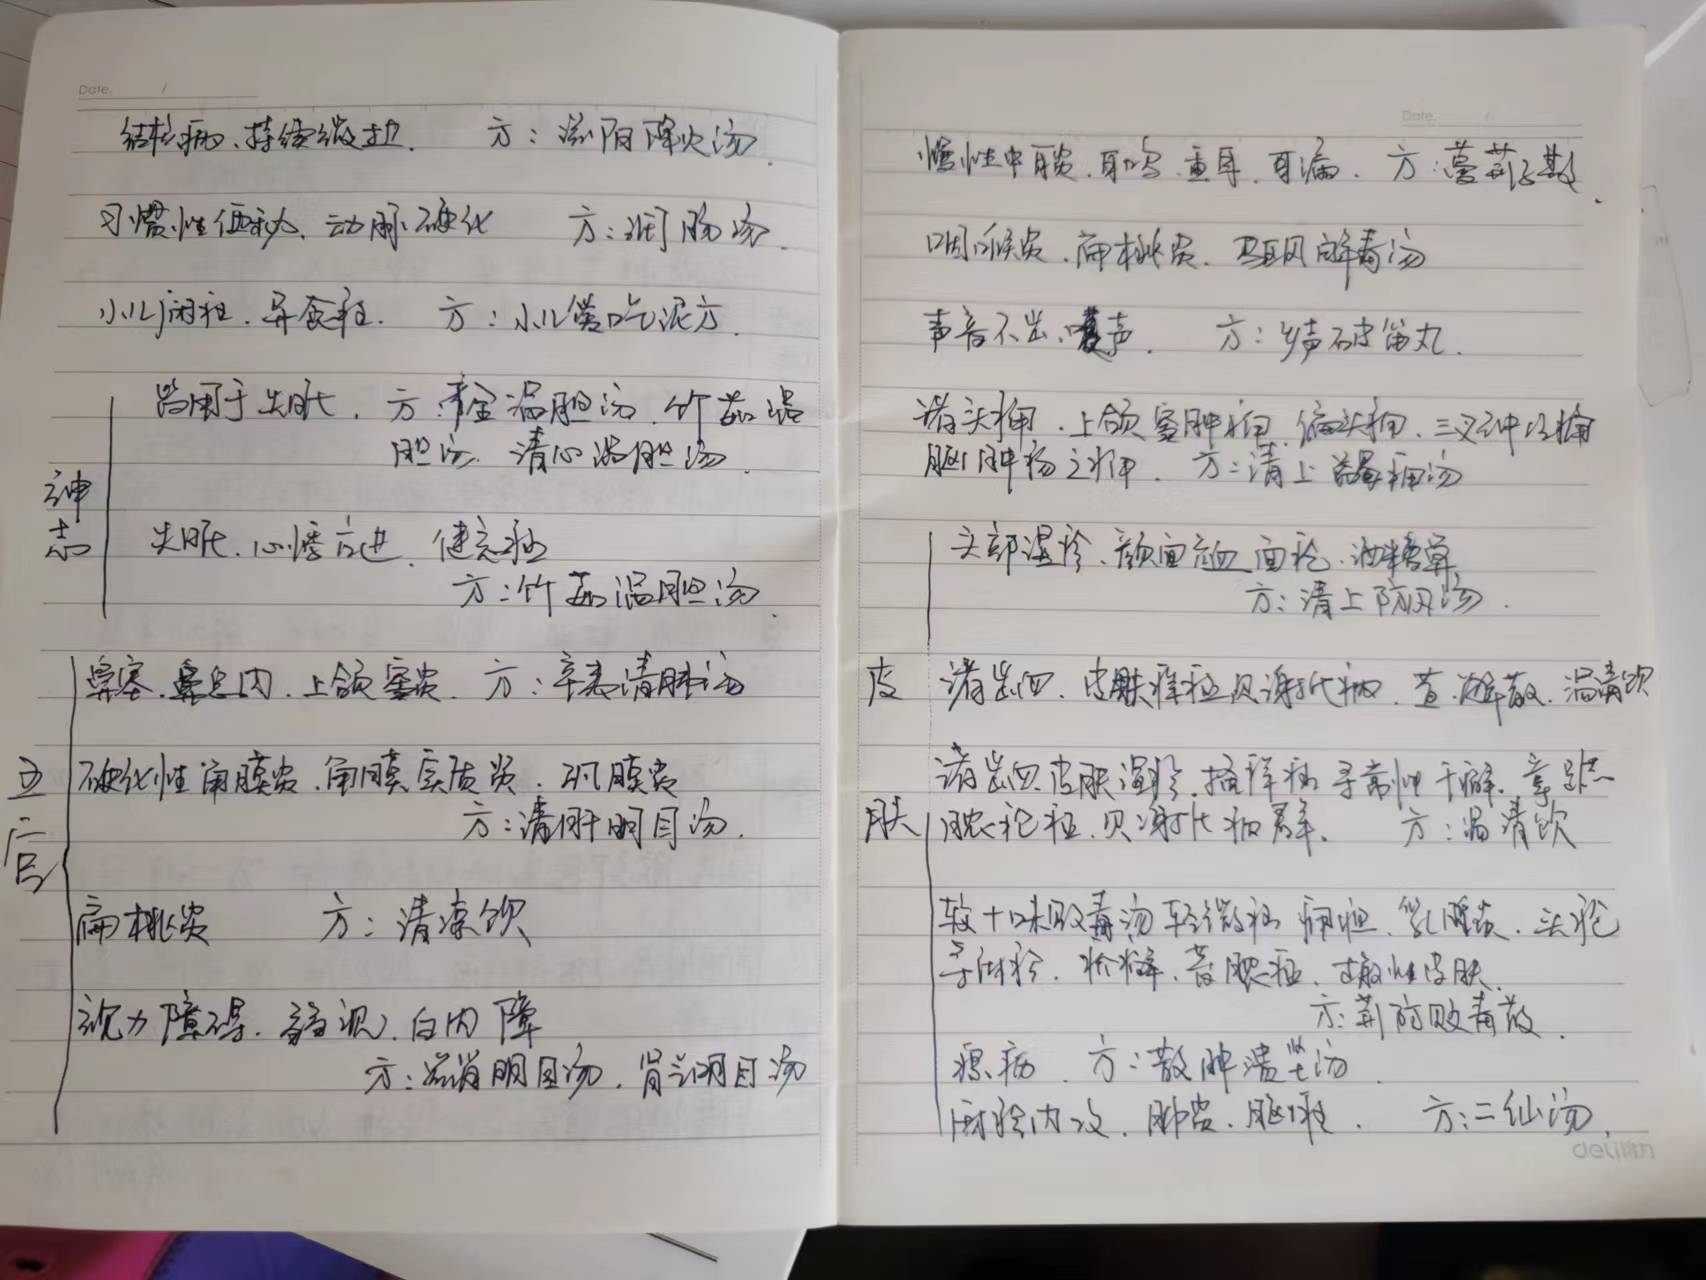 Date.
结核病、持续微热. 方：滋阴降火汤.
习惯性便秘、动脉硬化 方：润肠汤.
小儿疳积、异食症. 方：小儿偿吃泥方.
神志
皆用于失眠. 方 温胆汤. 竹茹温
胆汤. 清心温胆汤.
失眠、心悸亢进、健忘症
方：竹茹温胆汤.
五官
鼻塞、鼻息肉、上颌窦炎. 方：辛夷清肺汤
硬化性角膜炎、角膜实质炎、巩膜炎
方：清肝明目汤.
扁桃炎 方：清凉饮
视力障碍、弱视、白内障
方：滋肾明目汤. 肾气明目汤
Date.
慢性中耳炎、耳鸣、重耳、耳漏. 方：蔓荆子散.
咽喉炎、扁桃炎. 驱风解毒汤
声音不出、嗄声. 方：响声破笛丸.
诸头痛、上颌窦肿痛、偏头痛、三叉神经痛
脑肿疡之痛. 方：清上蠲痛汤
皮肤
头部湿疹、颜面充血 面疱、酒糟鼻
方：清上防风汤.
诸出血、皮肤痒症 贝谢氏病. 散. 温清饮
诸出血 皮肤湿疹、搔痒症 寻常性干癣、掌蹠
脓疱症、贝谢氏病群. 方：温清饮
较十味败毒汤轻微症 痈疽、乳腺炎、头疮
荨麻疹、疥癣、蓄脓症、过敏性皮肤.
方：荆防败毒散.
瘰疬 方：散肿溃坚汤.
麻疹内攻、肺炎、脑症. 方：二仙汤.
deli得力